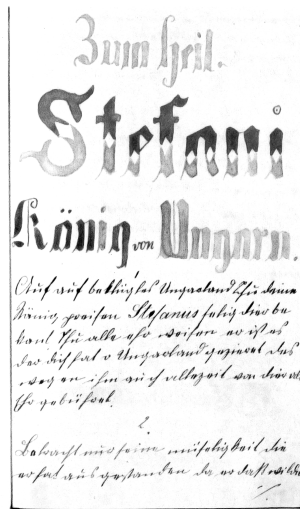 Zum heil.
Stefani
König von Ungarn.
1
Auf auf beklügtes Ungarland Thu deine
König preisen Stefanus selig dir be
kant Thu alle ehr weisen er ist es
der dich hat o Ungarland gezieret des
weg en ihm auch allezeit von dir
Ehr gebühret.
2.
Betracht nur seine müseligkeit die
er hat ausgestanden da er daß wilde